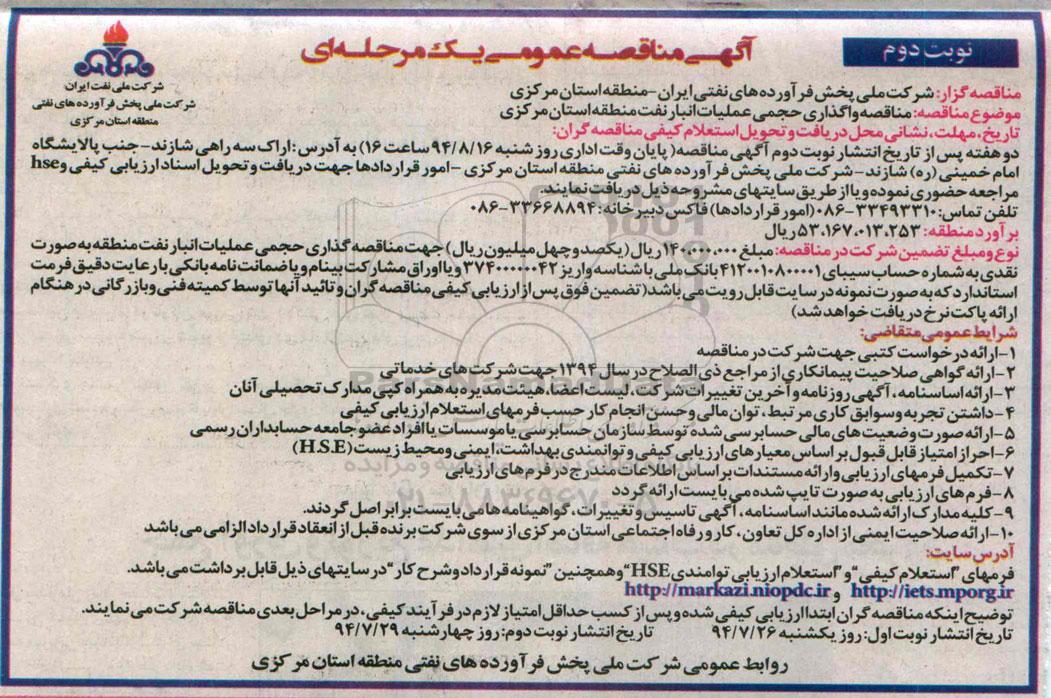 نوبت دوم
آگهی مناقصه عمومی یک مرحله‌ای
شرکت ملی نفت ایران
شرکت ملی پخش فرآورده های نفتی
منطقه استان مرکزی
مناقصه گزار: شرکت ملی پخش فرآورده های نفتی ایران-منطقه استان مرکزی
موضوع مناقصه: مناقصه واگذاری حجمی عملیات انبار نفت منطقه استان مرکزی
تاریخ، مهلت، نشانی محل دریافت و تحویل استعلام کیفی مناقصه گران:
دو هفته پس از تاریخ انتشار نوبت دوم آگهی مناقصه( پایان وقت اداری روز شنبه ۹۴/۸/۱۶ ساعت ۱۶) به آدرس :اراک سه راهی شازند- جنب پالایشگاه
امام خمینی (ره) شازند-شرکت ملی پخش فرآورده های نفتی منطقه استان مرکزی -امور قراردادها جهت دریافت و تحویل اسناد ارزیابی کیفی و hse
مراجعه حضوری نموده و یا از طریق سایتهای مشروحه ذیل دریافت نمایند.
تلفن تماس: ۳۳۴۹۳۳۱۰-۰۸۶ (امور قراردادها) فاکس دبیرخانه: ۳۳۶۶۸۸۹۲-۰۸۶
برآورد منطقه: ۵۳.۱۶۷.۰۱۳.۲۵۳ ریال
نوع و مبلغ تضمین شرکت در مناقصه: مبلغ ۱۴۰.۰۰۰.۰۰۰ ریال (یکصد و چهل میلیون ریال) جهت مناقصه گذاری حجمی عملیات انبار نفت منطقه به صورت
نقدی به شماره حساب سیبای ۴۱۲۰۰۱۰۸۰۰۰۰۱ بانک ملی با شناسه واریز ۳۷۴۰۰۰۰۰۰۴۲ و یا اوراق مشارکت بینام و یا ضمانت نامه بانکی با رعایت دقیق فرمت
استاندارد که به صورت نمونه در سایت قابل رویت می باشد( تضمین فوق پس از ارزیابی کیفی مناقصه گران و تائید آنها توسط کمیته فنی و بازرگانی در هنگام
ارائه پاکت نرخ دریافت خواهد شد)
شرایط عمومی متقاضی:
۱-ارائه درخواست کتبی جهت شرکت در مناقصه
۲-ارائه گواهی صلاحیت پیمانکاری از مراجع ذی الصلاح در سال ۱۳۹۴ جهت شرکت های خدماتی
۳-ارائه اساسنامه، آگهی روزنامه و آخرین تغییرات شرکت، لیست اعضا، هیئت مدیره به همراه کپی مدارک تحصیلی آنان
۴-داشتن تجربه و سوابق کاری مرتبط، توان مالی و حسن انجام کار حسب فرمهای استعلام ارزیابی کیفی
۵-ارائه صورت وضعیت های مالی حسابرسی شده توسط سازمان حسابرسی یا موسسات یا افراد عضو جامعه حسابداران رسمی
۶-احراز امتیاز قابل قبول بر اساس معیارهای ارزیابی کیفی و توانمندی بهداشت، ایمنی و محیط زیست (H.S.E)
۷-تکمیل فرمهای ارزیابی و ارائه مستندات بر اساس اطلاعات مندرج در فرم های ارزیابی
۸-فرم های ارزیابی به صورت تایپ شده می بایست ارائه گردد
۹-کلیه مدارک ارائه شده مانند اساسنامه، آگهی تاسیس و تغییرات، گواهینامه ها می بایست برابر اصل گردند.
۱۰-ارائه صلاحیت ایمنی از اداره کل تعاون، کار و رفاه اجتماعی استان مرکزی از سوی شرکت برنده قبل از انعقاد قرارداد الزامی می باشد
آدرس سایت:
فرمهای "استعلام کیفی" و "استعلام ارزیابی توانمندی HSE" و همچنین "نمونه قرارداد و شرح کار" در سایتهای ذیل قابل برداشت می باشد.
http://iets.mporg.ir و http://markazi.niopdc.ir
توضیح اینکه مناقصه گران ابتدا ارزیابی کیفی شده و پس از کسب حداقل امتیاز لازم در فرآیند کیفی، در مراحل بعدی مناقصه شرکت می نمایند.
تاریخ انتشار نوبت اول: روز یکشنبه ۹۴/۷/۲۶ تاریخ انتشار نوبت دوم: روز چهارشنبه ۹۴/۷/۲۹
روابط عمومی شرکت ملی پخش فرآورده های نفتی منطقه استان مرکزی